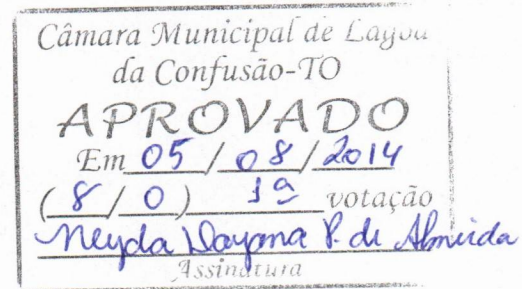 Câmara Municipal de Lagoa
da Confusão-TO
APROVADO
Em 05/08/2014
(8/0) 1ª votação
Neyda Dayana P. de Almeida
Assinatura